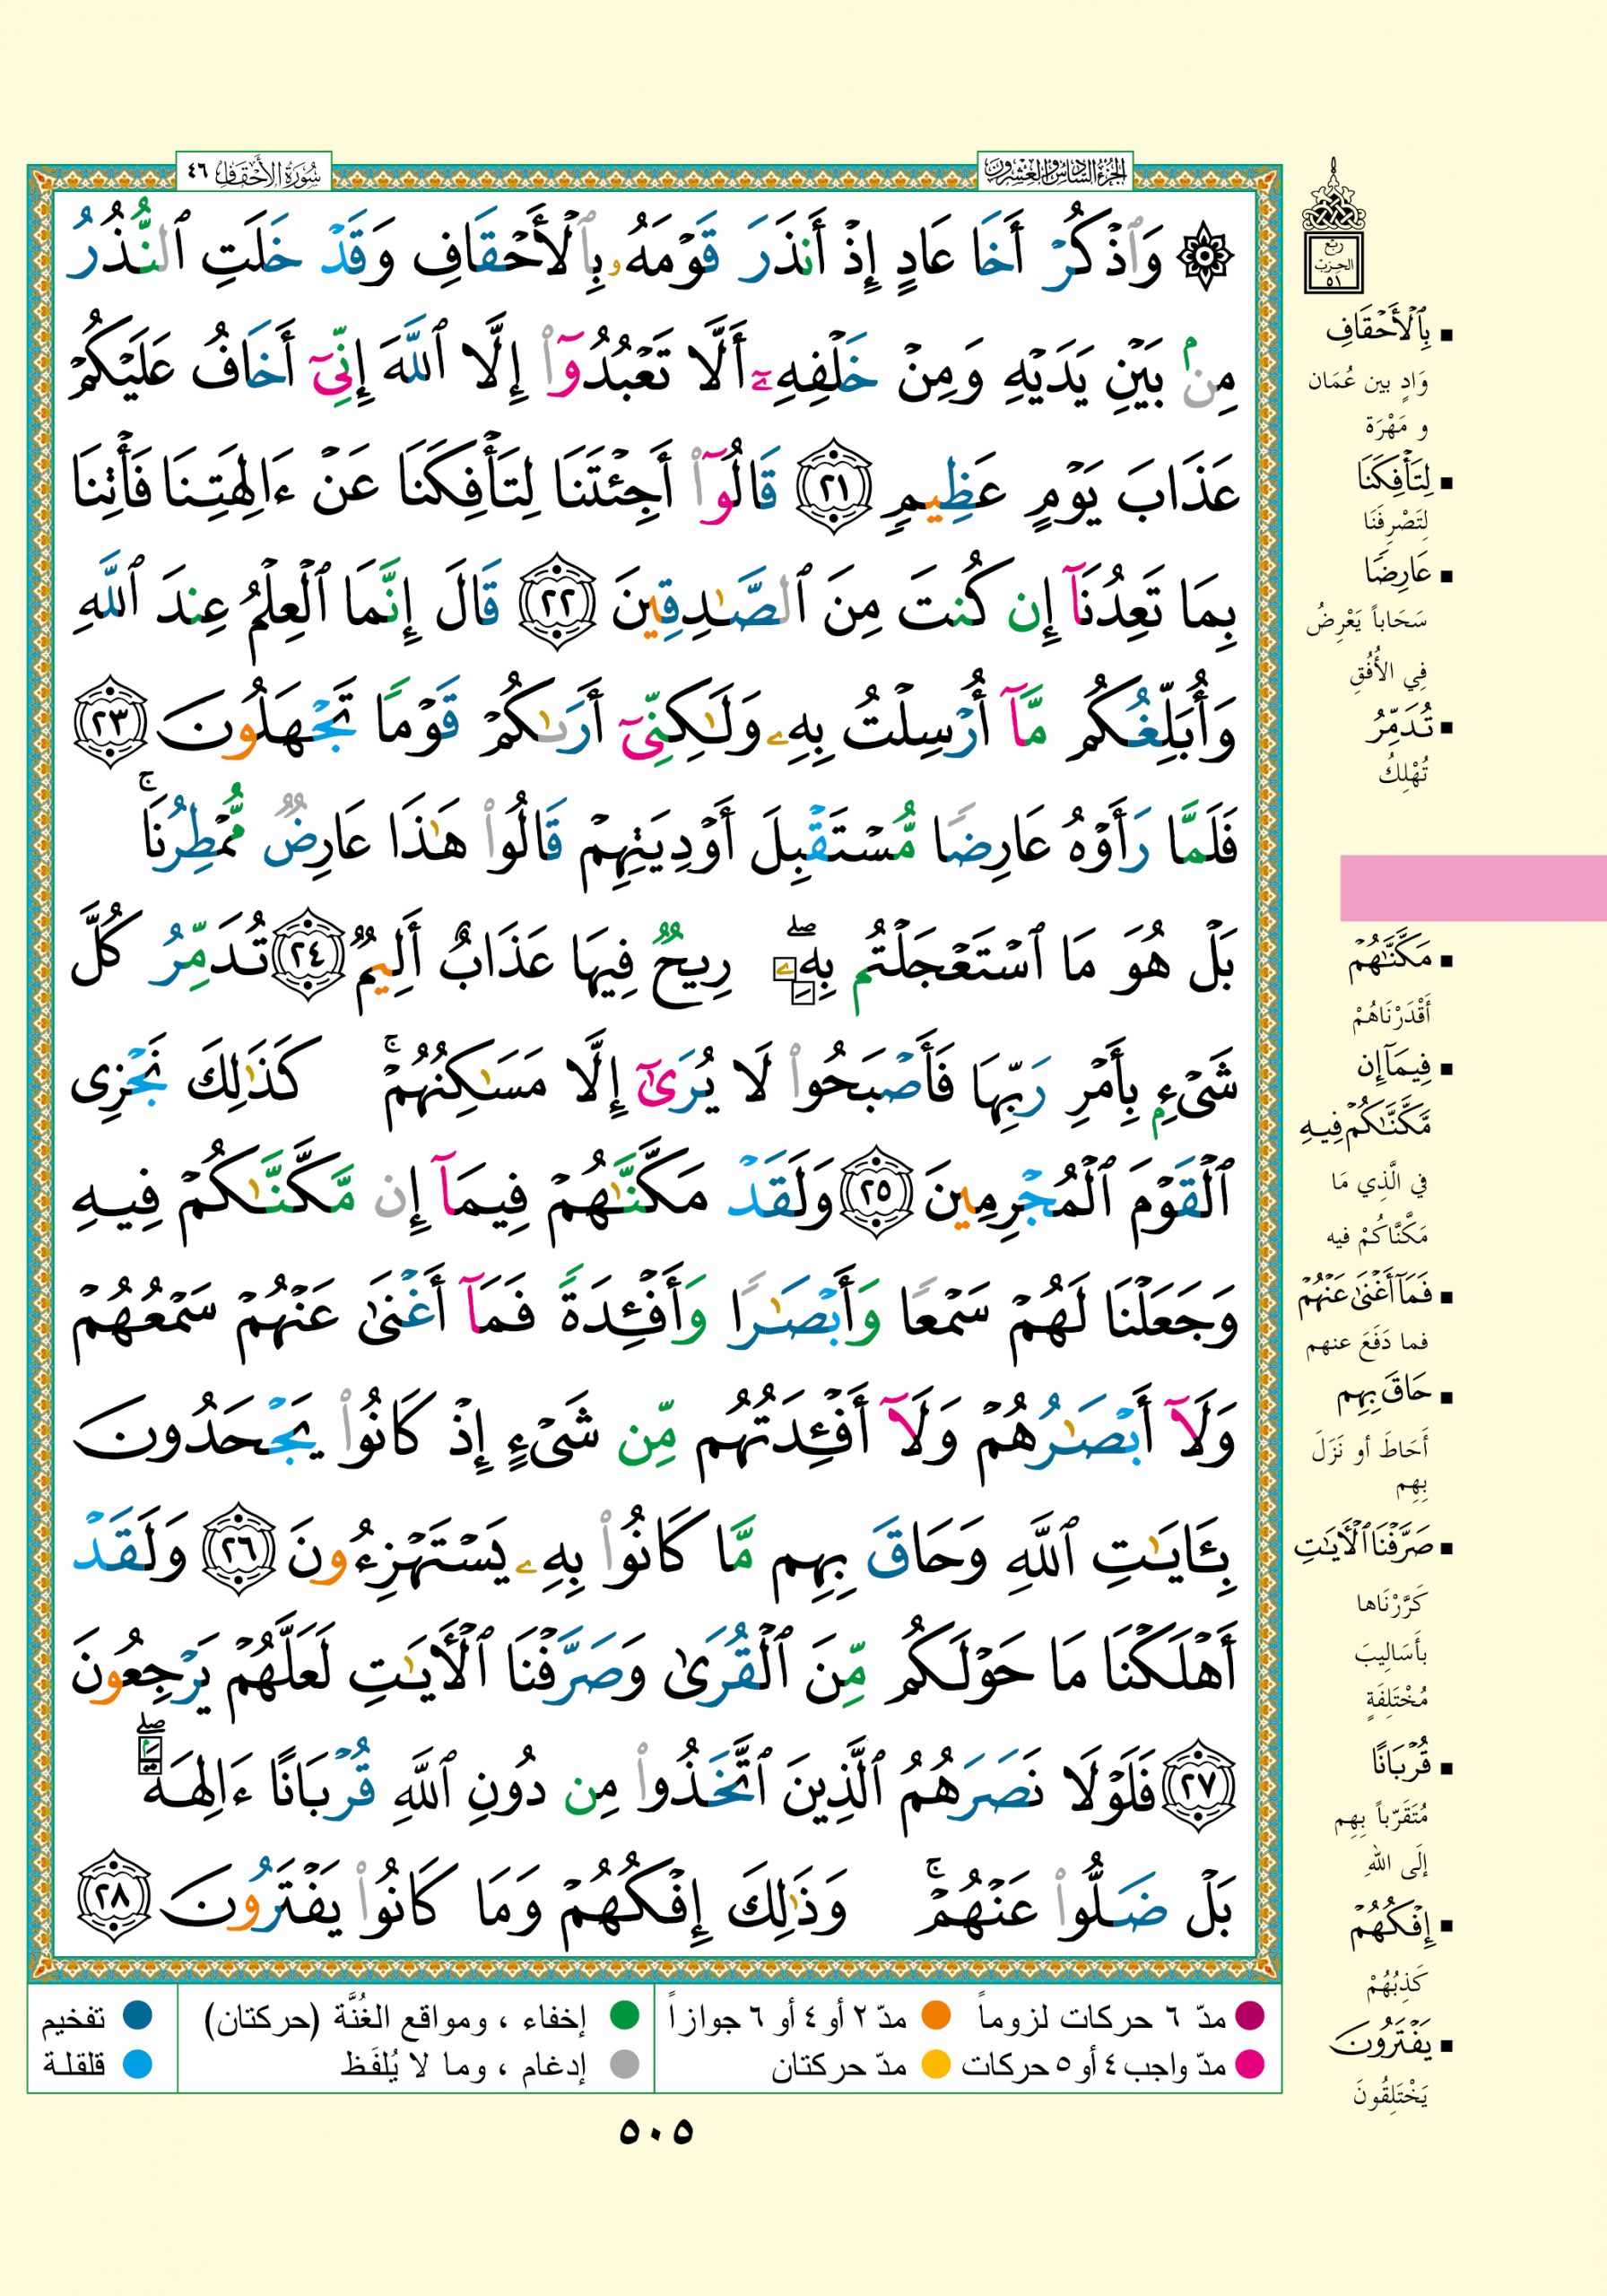 سُورَةُ الأَحْقَافِ ٤٦
الجُزءُ السَّادِسُ وَالعِشْرُونَ
۞ وَٱذْكُرْ أَخَا عَادٍ إِذْ أَنذَرَ قَوْمَهُۥ بِٱلْأَحْقَافِ وَقَدْ خَلَتِ ٱلنُّذُرُ
مِنۢ بَيْنِ يَدَيْهِ وَمِنْ خَلْفِهِۦٓ أَلَّا تَعْبُدُوٓا۟ إِلَّا ٱللَّهَ إِنِّىٓ أَخَافُ عَلَيْكُمْ
عَذَابَ يَوْمٍ عَظِيمٍ ٢١ قَالُوٓا۟ أَجِئْتَنَا لِتَأْفِكَنَا عَنْ ءَالِهَتِنَا فَأْتِنَا
بِمَا تَعِدُنَآ إِن كُنتَ مِنَ ٱلصَّـٰدِقِينَ ٢٢ قَالَ إِنَّمَا ٱلْعِلْمُ عِندَ ٱللَّهِ
وَأُبَلِّغُكُم مَّآ أُرْسِلْتُ بِهِۦ وَلَـٰكِنِّىٓ أَرَىٰكُمْ قَوْمًا تَجْهَلُونَ ٢٣
فَلَمَّا رَأَوْهُ عَارِضًا مُّسْتَقْبِلَ أَوْدِيَتِهِمْ قَالُوا۟ هَـٰذَا عَارِضٌ مُّمْطِرُنَا ۚ
بَلْ هُوَ مَا ٱسْتَعْجَلْتُم بِهِۦ ۖ رِيحٌ فِيهَا عَذَابٌ أَلِيمٌ ٢٤ تُدَمِّرُ كُلَّ
شَىْءٍۭ بِأَمْرِ رَبِّهَا فَأَصْبَحُوا۟ لَا يُرَىٰٓ إِلَّا مَسَـٰكِنُهُمْ ۚ كَذَٰلِكَ نَجْزِى
ٱلْقَوْمَ ٱلْمُجْرِمِينَ ٢٥ وَلَقَدْ مَكَّنَّـٰهُمْ فِيمَآ إِن مَّكَّنَّـٰكُمْ فِيهِ
وَجَعَلْنَا لَهُمْ سَمْعًا وَأَبْصَـٰرًا وَأَفْـِٔدَةً فَمَآ أَغْنَىٰ عَنْهُمْ سَمْعُهُمْ
وَلَآ أَبْصَـٰرُهُمْ وَلَآ أَفْـِٔدَتُهُم مِّن شَىْءٍ إِذْ كَانُوا۟ يَجْحَدُونَ
بِـَٔايَـٰتِ ٱللَّهِ وَحَاقَ بِهِم مَّا كَانُوا۟ بِهِۦ يَسْتَهْزِءُونَ ٢٦ وَلَقَدْ
أَهْلَكْنَا مَا حَوْلَكُم مِّنَ ٱلْقُرَىٰ وَصَرَّفْنَا ٱلْـَٔايَـٰتِ لَعَلَّهُمْ يَرْجِعُونَ
٢٧ فَلَوْلَا نَصَرَهُمُ ٱلَّذِينَ ٱتَّخَذُوا۟ مِن دُونِ ٱللَّهِ قُرْبَانًا ءَالِهَةًۢ ۖ
بَلْ ضَلُّوا۟ عَنْهُمْ ۚ وَذَٰلِكَ إِفْكُهُمْ وَمَا كَانُوا۟ يَفْتَرُونَ ٢٨
رُبْع
الحِزْبْ
٥١
بِٱلْأَحْقَافِ
وَادٍ بين عُمَان
و مَهْرَة
لِتَأْفِكَنَا
لِتَصْرِفَنَا
عَارِضًا
سَحَاباً يَعْرِضُ
فِي الأُفُقِ
تُدَمِّرُ
تُهْلِكُ
مَكَّنَّـٰهُمْ
أَقْدَرْنَاهُمْ
فِيمَآ إِن
مَّكَّنَّـٰكُمْ فِيهِ
في الَّذِي مَا
مَكَّنَّاكُمْ فيه
فَمَآ أَغْنَىٰ عَنْهُمْ
فما دَفَعَ عنهم
حَاقَ بِهِم
أَحَاطَ أو نَزَلَ
بِهِم
صَرَّفْنَا ٱلْـَٔايَـٰتِ
كَرَّرْنَاها
بأَسَالِيبَ
مُخْتَلِفَةٍ
قُرْبَانًا
مُتَقَرّباً بِهِم
إلَى اللهِ
إِفْكُهُمْ
كَذِبُهُمْ
يَفْتَرُونَ
يَخْتَلِقُونَ
مدّ ٦ حركات لزوماً
مدّ ٢ أو ٤ أو ٦ جوازاً
إخفاء ، ومواقع الغُنَّة (حركتان)
تفخيم
مدّ واجب ٤ أو ٥ حركات
مدّ حركتان
إدغام ، وما لا يُلفَظ
قلقلة
٥٠٥